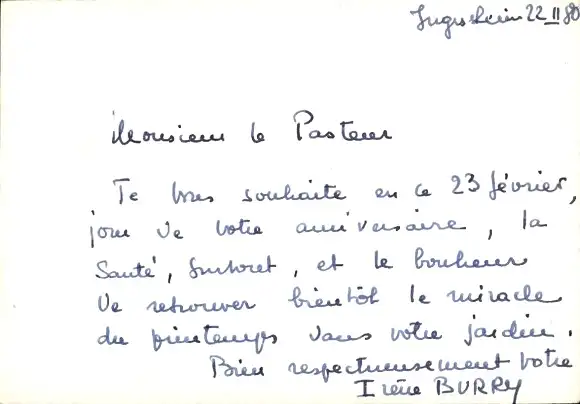 Jngersheim 22 II 80
Monsieur le Pasteur
Je vous souhaite en ce 23 février,
jour de votre anniversaire, la
Santé, surtout, et le bonheur
de retrouver bientôt le miracle
du printemps dans votre jardin.
Bien respectueusement votre
Irène BURRY